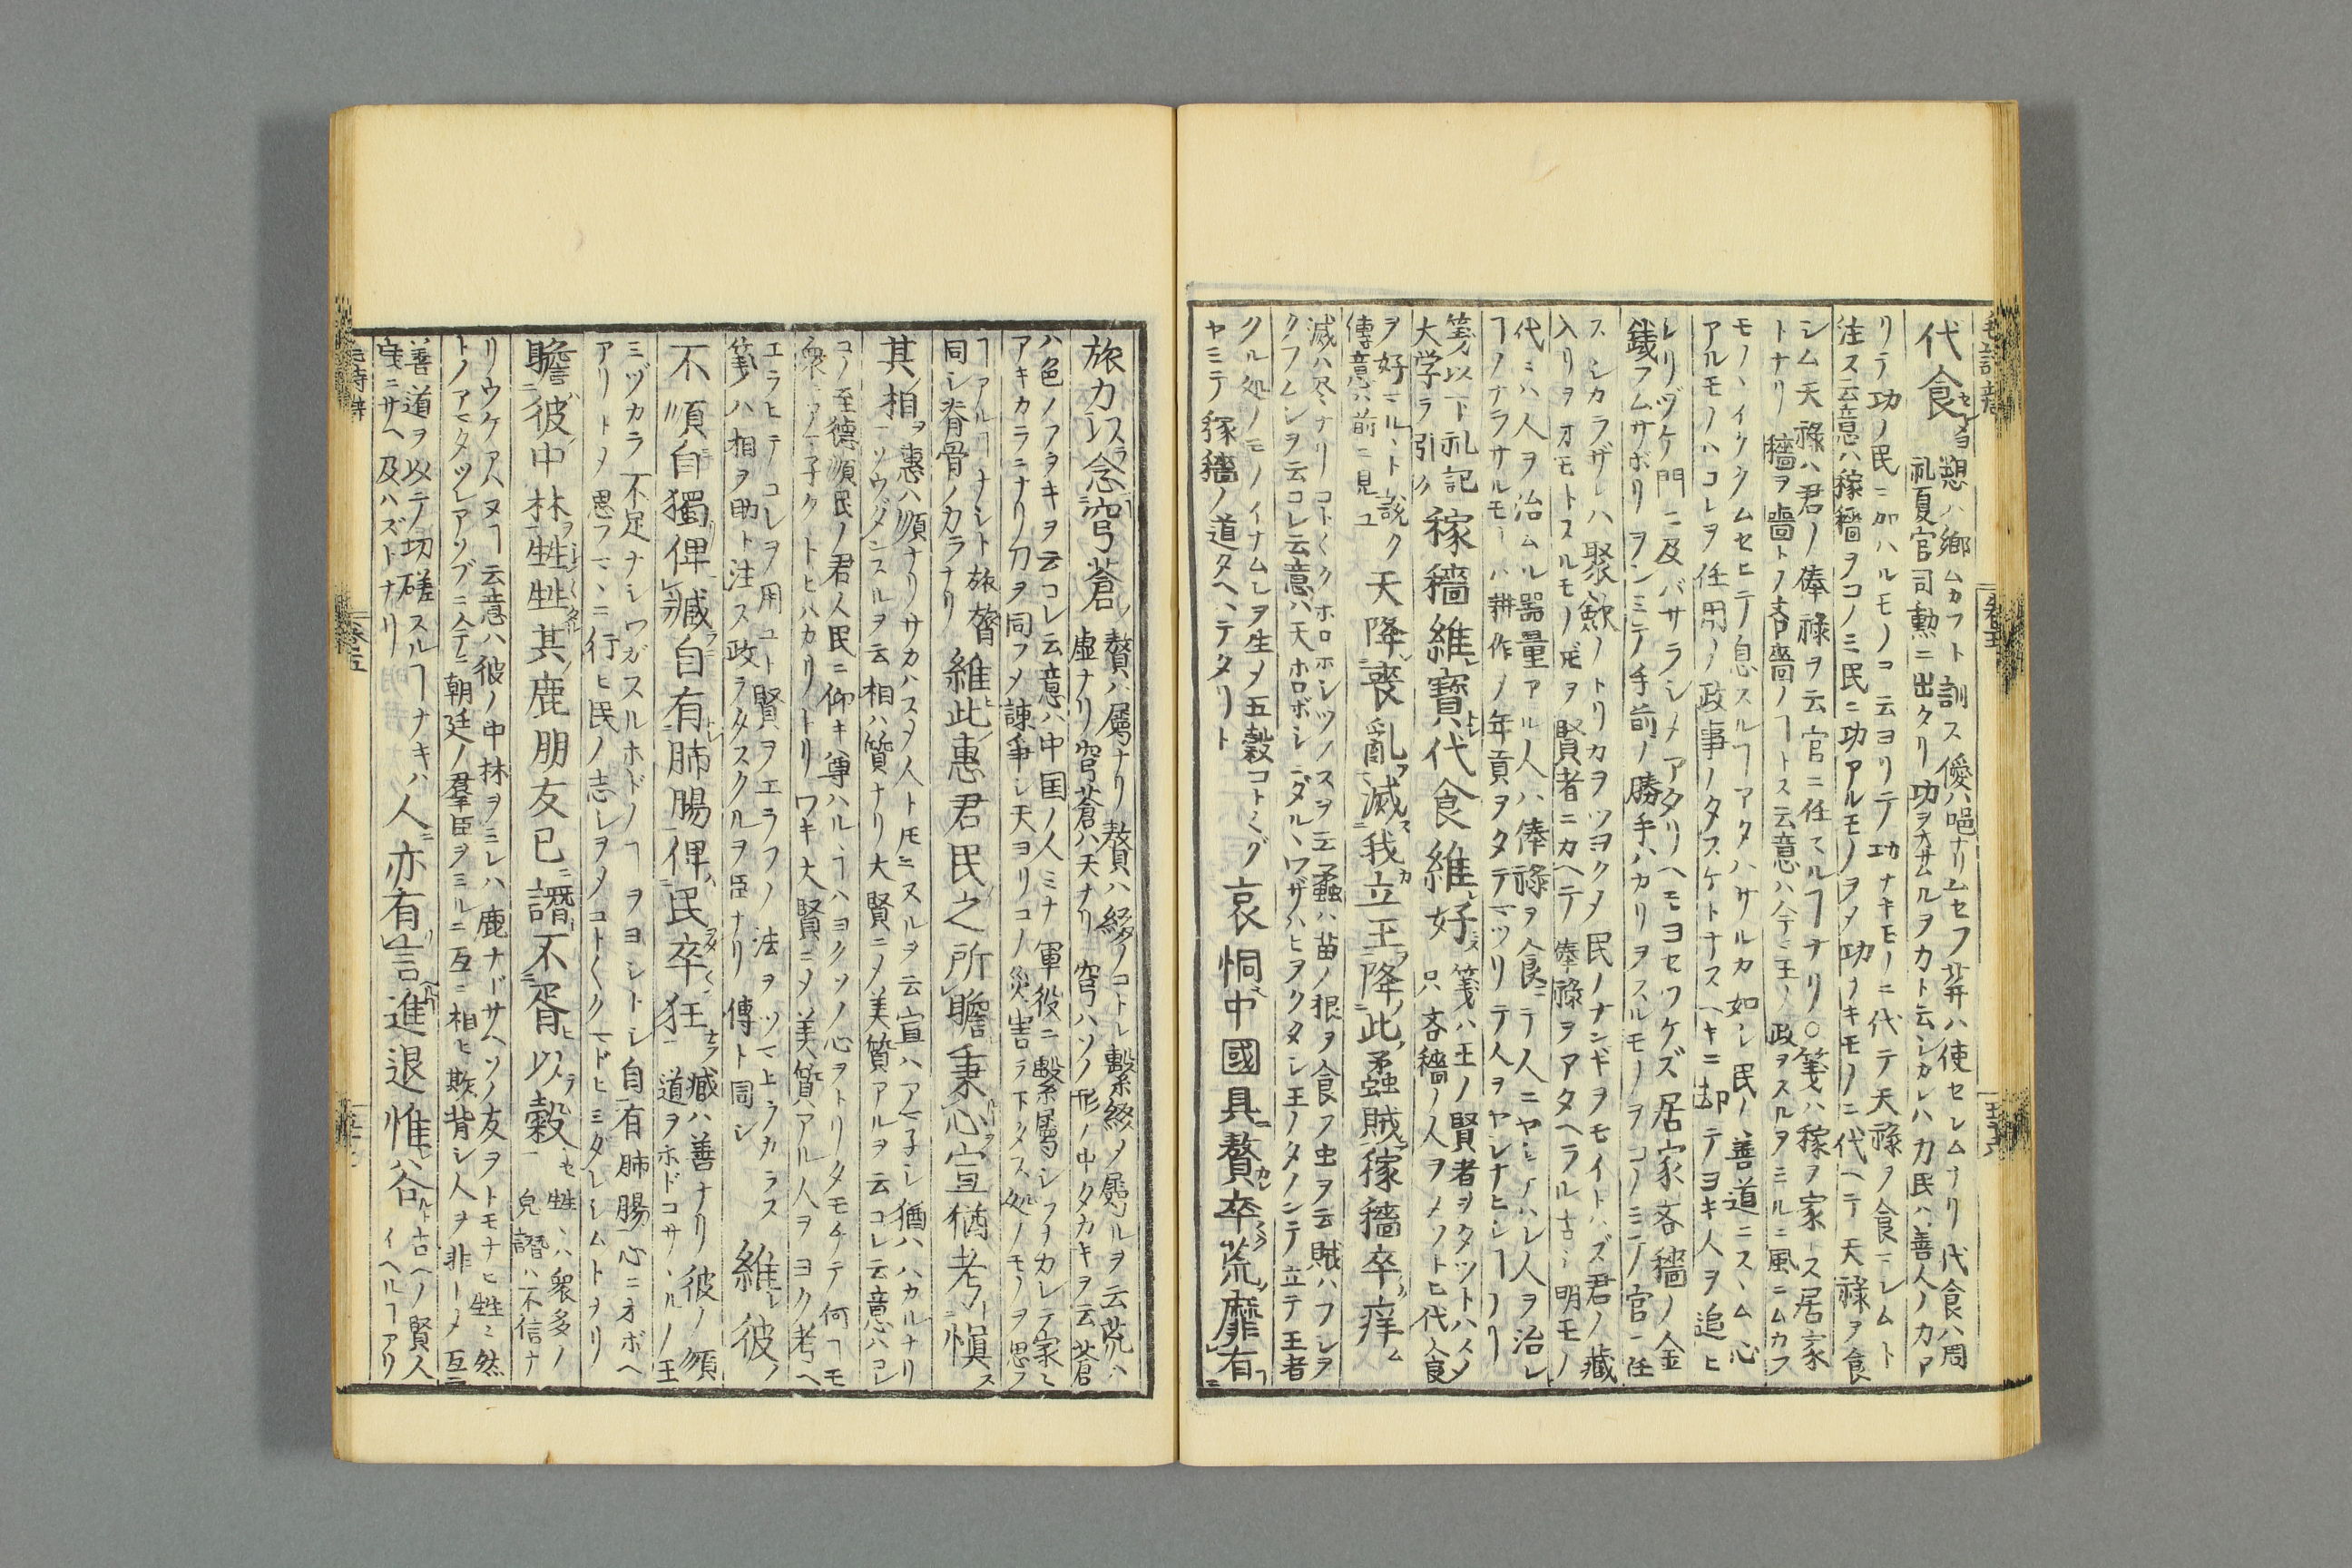 代食
愬ハ郷ムカフト訓ス優ハ唈ナリムセフ荓ハ使セシムナリ代食ハ周
礼夏官司勲ニ出タリ功ヲオサムルヲカト云シカレハ力民ハ善人ノカア
リテ功ノ民ニ加ハルモノコ云ヨリテ功ナキモノニ代テ天祿ヲ食マシムト
注ス云意ハ稼穡ヲコノミ民ニ功アルモノヲメ功ナキモノニ代ヘテ天祿ヲ食
シム天祿ハ君ノ俸祿ヲ云官ニ任スルヿナリ○箋ハ稼ヲ家トス居家
トナリ穡ヲ嗇トメ吝嗇ノヿトス云意ハ今ニ王ノ政ヲスルヲミルニ風ニムカフ
モノヽイククムセヒテ息スルヿアタハサルカ如シ民ノ善道ニスヽム心
アルモノハコレヲ任用ノ政事ノタスケトナスヘキニ却テヨキ人ヲ追ヒ
シリゾケ門ニ及バサラシメアタリヘモヨセツケズ居家吝穡ノ金
銭フムサボリヲシミテ手前ノ勝手ハカリヲスルモノヲコノミテ官ニ任
スシカラザレハ聚歛ノトリカヲツヨクメ民ノナンギヲモイトハズ君ノ藏
入リヲオモトスルモノヲ賢者ニカヘテ俸祿ヲアタヘラル古ハ明モノ
代ミハ人ヲ治ムル器量アル人ハ俸祿ヲ食ミテ人ニヤシナハレ人ヲ治レ
ヿノナラサルモノハ耕作ノ年貢ヲタテマツリテ人ヲヤシナヒシヿナリ
箋以下礼記
大学ラ引ク
稼穡維寶代食維好
箋ハ王ノ賢者ヲタツトハスメ
只吝穡ノ人ヲメソトヒ代食
ヲ好マルヽト説ク
傳意ハ前ニ見ユ
天降喪亂滅我立王降此蟊賊稼穡卒痒
滅ハ尽ナリコトくクホロホシツノスヲ云蟊ハ苗ノ根ヲ食フ虫ヲ云賊ハフシヲ
クフムシヲ云コレ云意ハ天ホロボシミダルヽワザハヒヲクタシ王ノタメンテ立テ王者
クル処ノモノイナムシヲ生メ五穀コトくグ
ヤミテ稼穡ノ道タヘヽテタリト
哀恫中國具贅卒荒靡有
旅力以念穹蒼
贅ハ屬ナリ贅ハ綴ノコトシ繫綴メ屬ルヲ云荒ハ
虚ナリ穹蒼ハ天ナリ穹ハソノ形ノ中タカキヲ云蒼
ハ色ノアヲキヲ云コレ云意ハ中国ノ人ミナ軍役ニ繫屬シツナカレテ家ミ
アキカラニナリ刀ヲ同フメ諫争シ天ヨリコノ災害ラ下タス処ノモノヲ思フ
ヿアルヿナシト旅膂
同シ脊骨ノカラナリ
維此惠君民之所瞻秉心宣猶考愼
其相
惠ハ順ナリサカハスメ人トモニスルヲ云宣ハアマネシ猶ハハカルナリ
ソウダンスルヲ云相ハ質ナリ大賢ニメ美質アルヲ云コレ云意ハコレ
コノ至德順民ノ君人民ニ仰キ尊ハルヽヿハヨクソノ心ヲトリタモチテ何ヿモ
衆ニアマ子クトヒハカリトリワキ大賢ニメ美質アル人ヲヨク考ヘ
エラヒテコレヲ用ユト賢ヲエラフノ法ヲツマヒラカラス
箋ハ相ヲ助ト注ス政ラタスクルヲ臣ナリ傳ト同シ
維彼
不順自獨俾臧自有肺腸俾民卒狂
臧ハ善ナリ彼ノ順
道ヲホドコサヽルノ王
ミヅカラ不足ナシワガスルホドノヿヲヨシトシ自有肺腸心ニオボヘ
アリトメ思フマヽニ行ヒ民ノ志シヲメコトくクマドヒミダレシムトナリ
瞻彼中林甡甡其鹿朋友已譖不胥以穀
甡ヽハ衆多ノ
皃譖ハ不信ナ
リウケアハヌヿ云意ハ彼ノ中林ヲミレハ鹿ナドサヘソノ友ヲトモナヒ甡ミ然
トノアマタツレアソブニ今ミ朝廷ノ羣臣ヲミルニ互ニ相ヒ欺背シ人ヲ非トメ互ニ
善道ヲ以テノ切磋スルヿナキハ
鹿ニサヘ及ハズトナリ
人亦有言進退惟谷
古ヘノ賢人
イヘルヿアリ